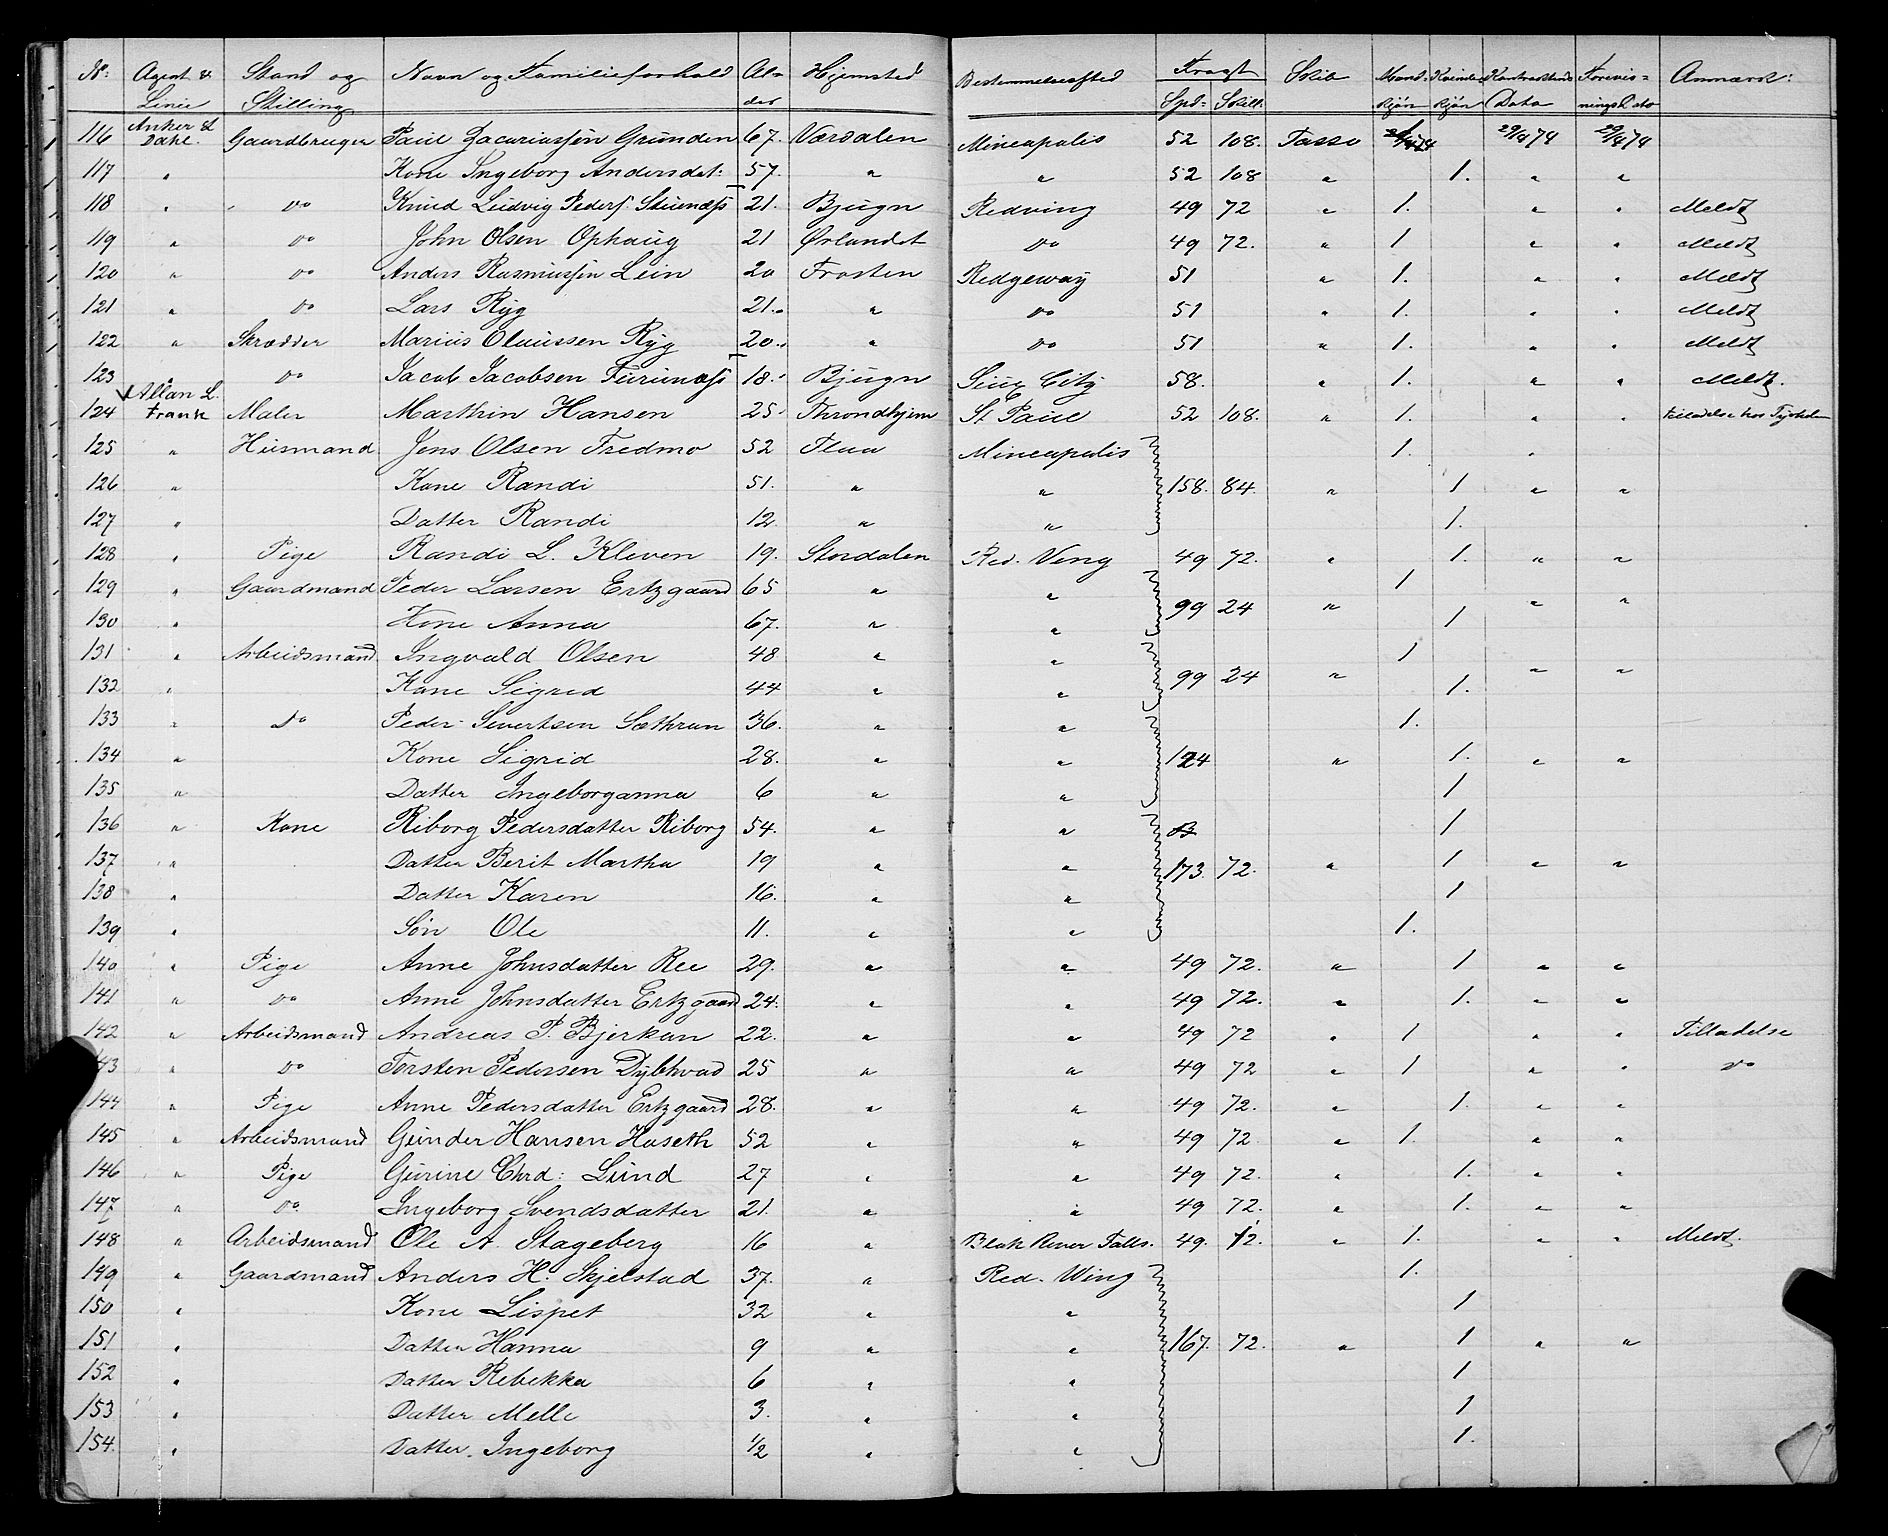 No: Agent & Linie Stand og Stilling Navn og Familieforhold Alder Hjemsted Bestemmelsessted Fragt Spd: Skill: Skib Mandkjøn Kvindekjøn Kontraktens Dato Forevisningsdato Anmærk:
116 Anker L. Dahl. Gaardbruger Paul Zacariassen Grunden 67. Værdalen Mineapolis 52 108. Tasso 29/4 74 29/4 74
117 " Kone Ingeborg Andersdat: 57. " " 52 108 " 1. " "
118 " do Knud Ludvig Peders. 21. Bjugn Redwing 49 72 " 1. " " Meldt
119 " do John Olsen Ophaug 21 Ørlandet do 49 72. " 1 " " Meldt
120 " do Anders Rasmussen Lein 20 Frosten Redgeway 51 " 1. " " Meldt
121 " do Lars Ryg 21. " do 51 " 1. " " Meldt
122 " Skrædder Marius Olaussen Ryg 20. " do 51 " 1. " " Meldt
123 " do Jacob Jacobsen Furunæss 18. Bjugn Siux City 58. " 1. " " Meldt.
124 Allan L. Frank Maler Marthin Hansen 25. Throndhjem St Paul 52 108. " 1. " " Tilladelse hos
125 " Husmand Jens Olsen Fredmo 52 Flaa Mineapolis 1. "
126 " Kone Randi 51. " " 158. 84. " 1 " "
127 " Datter Randi 12. " " 1.
128 " Pige Randi L. Kleven 19. Stordalen Red. Ving 49 72. " 1. " "
129 " Gaardmand Peder Larsen Ertzgaard 65 " " 1
130 " Kone Anna 67. " " 99 24 " 1 " "
131 " Arbeidsmand Ingvald Olsen 48 " " 1
132 " Kone Sigrid 44 " " 99 24 " 1. " "
133 " do Peder Sivertsen Sæthran 36. " " 1.
134 " Kone Sigrid 28. " " 124 " 1. " "
135 " Datter Ingeborganna 6 " " 1
136 " Kone Riborg Pedersdatter Riborg 54. " " 1
137 " Datter Berit Martha 19 " " 173. 72. " 1 " "
138 " Datter Karen 16. " " 1
139 " Søn Ole 11. " " 1.
140 " Pige Anne Johnsdatter Ree 29. " " 49 72. " 1 " "
141 " do Anne Johnsdatter Ertzgaard 24. " " 49 72. " 1. " "
142 " Arbeidsmand Andreas P. Bjerkan 22. " " 49 72 " 1 " " Tilladelse
143 " do Torsten Pedersen Dybhvad 25 " " 49 72 " 1 " " do
144 " Pige Anne Pedersdatter Ertzgaard 28. " " 49 72. " 1. " "
145 " Arbeidsmand Gunder Hansen Haseth 52 " " 49 72 " 1. " "
146 " Pige Gurine Chrd: Lund 27 " " 49 72. " 1. " "
147 " do Ingeborg Svendsdatter 21. " " 49 72. " 1. " "
148 " Arbeidsmand Ole A. Stageberg 16 " Blak River Falls. 49. 72. " 1. " " Meldt.
149 " Gaardmand Anders H. Skjelstad 37. " Red. Wing 1.
150 " Kone Lispet 32 " " 1
151 " Datter Hanna 9 " " 167. 72. " 1 " "
152 " Datter Rebekka 6 " " 1
153 " Datter Melle 3. " " 1
154. " Datter Ingeborg 1/2 " " 1.